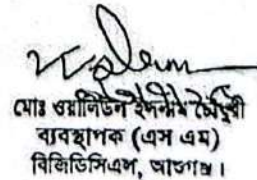 মোঃ ওয়ালিউল ইসলাম চৌধুরী
ব্যবস্থাপক (এস এম)
বিজিডিসিএল, আশুগঞ্জ।